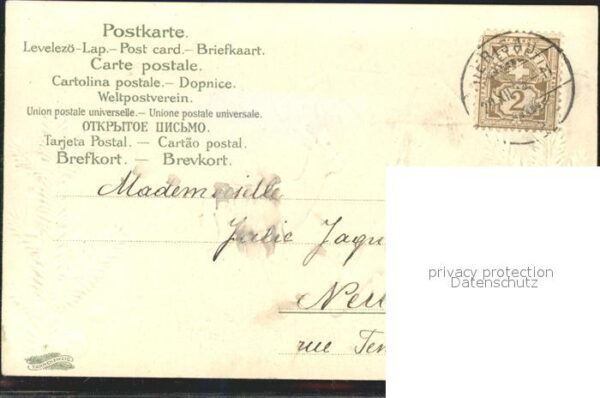 Postkarte.
Levelező-Lap. – Post card. – Briefkaart.
Carte postale.
Cartolina postale. – Dopnice.
Weltpostverein.
Union postale universelle. – Unione postale universale.
ОТКРЫТОЕ ПИСЬМО.
Tarjeta Postal. — Cartão postal.
Brefkort. — Brevkort.
2
Mademoiselle
Julie Jaqu
Neu
rue Ten
privacy protection
Datenschutz